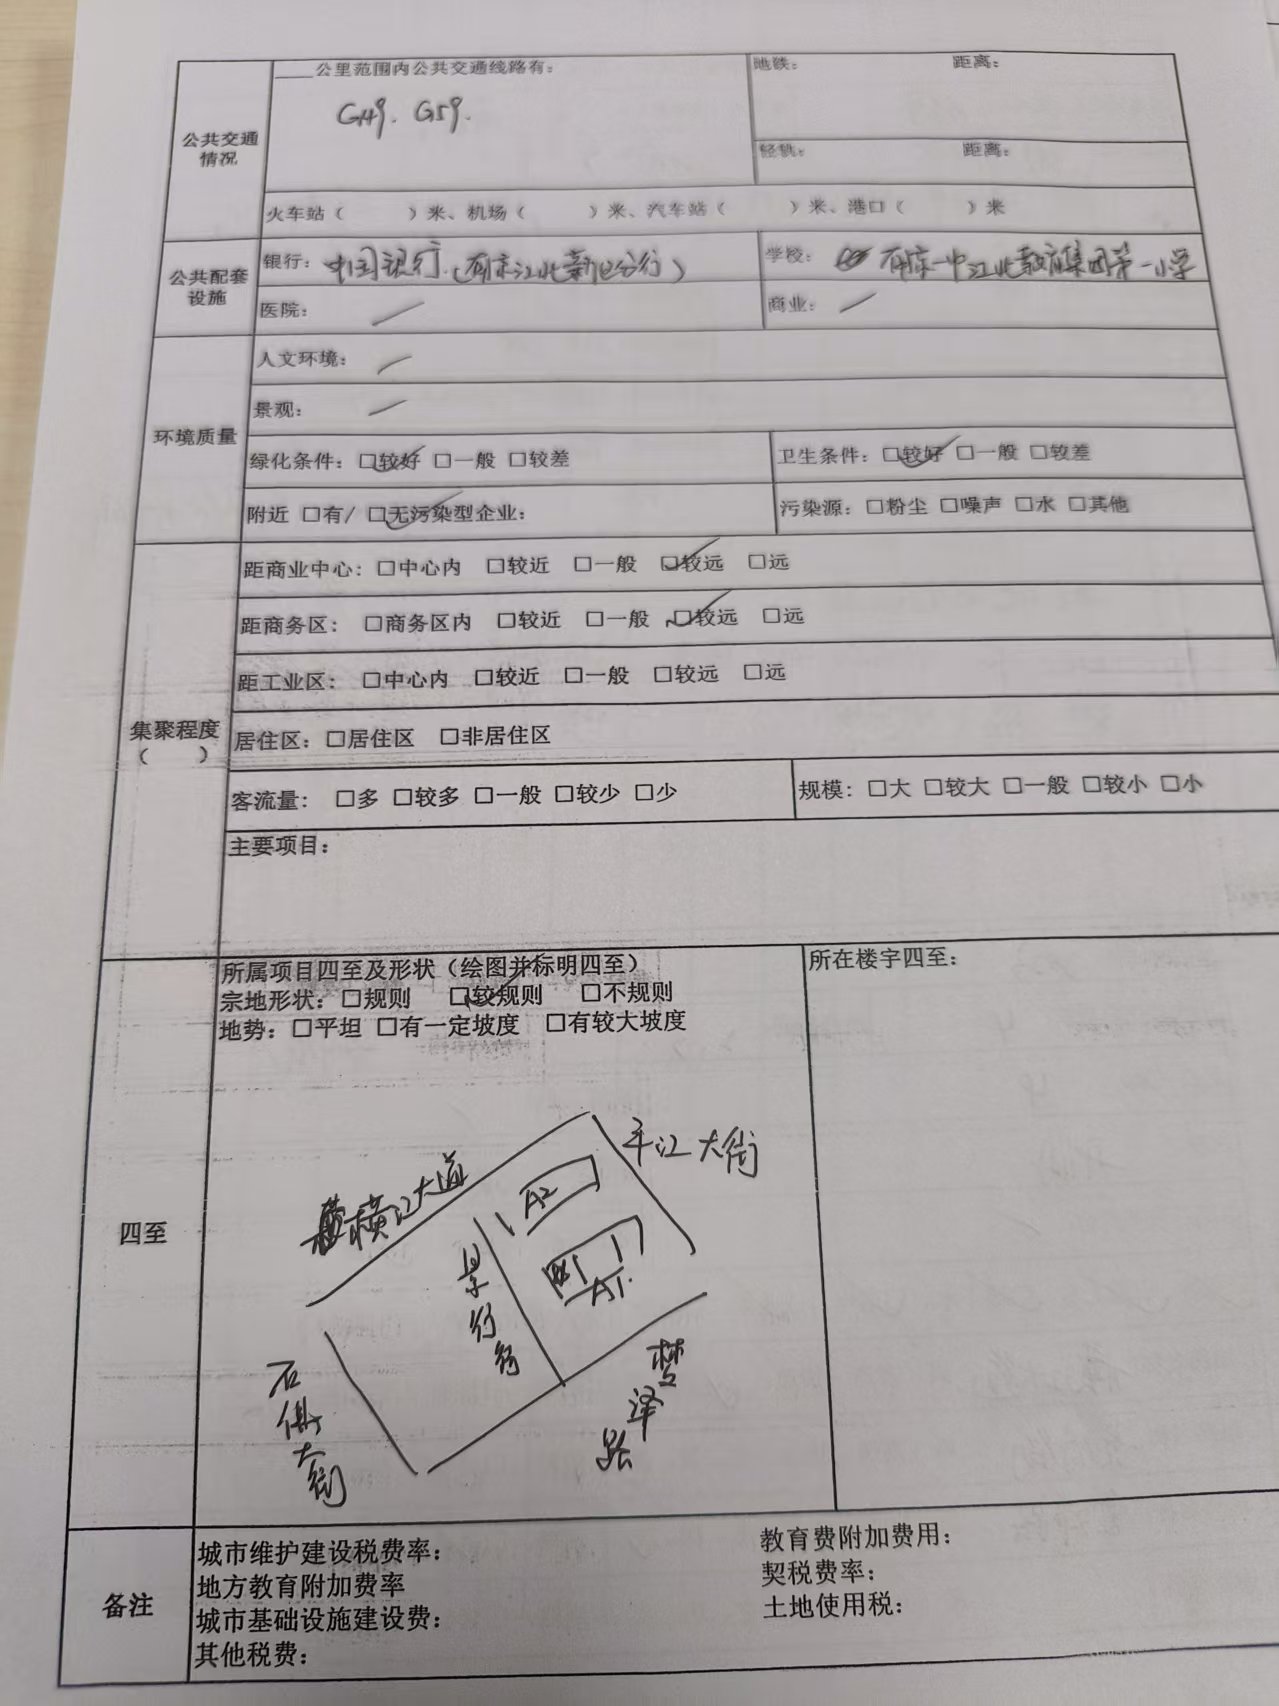 公共交通情况
____公里范围内公共交通线路有：
G49. G59.
地铁： 距离：
轻轨： 距离：
火车站（ ）米、机场（ ）米、汽车站（ ）米、港口（ ）米
公共配套设施
银行：中国银行.（南京江北新区分行）
学校：南京一中江北教育集团第一小学
医院：/
商业：/
环境质量
人文环境：/
景观：/
绿化条件：☑较好 □一般 □较差
卫生条件：☑较好 □一般 □较差
附近 □有/ ☑无污染型企业：
污染源：□粉尘 □噪声 □水 □其他
集聚程度
（ ）
距商业中心：□中心内 □较近 □一般 ☑较远 □远
距商务区： □商务区内 □较近 □一般 ☑较远 □远
距工业区： □中心内 □较近 □一般 □较远 □远
居住区：□居住区 □非居住区
客流量： □多 □较多 □一般 □较少 □少
规模：□大 □较大 □一般 □较小 □小
主要项目：
四至
所属项目四至及形状（绘图并标明四至）
宗地形状：□规则 ☑较规则 □不规则
地势：□平坦 □有一定坡度 □有较大坡度
所在楼宇四至：
横江大道
平江大街
A2
A1.
景行路
石佛大街
梦泽路
备注
城市维护建设税费率：
地方教育附加费率
城市基础设施建设费：
其他税费：
教育费附加费用：
契税费率：
土地使用税：